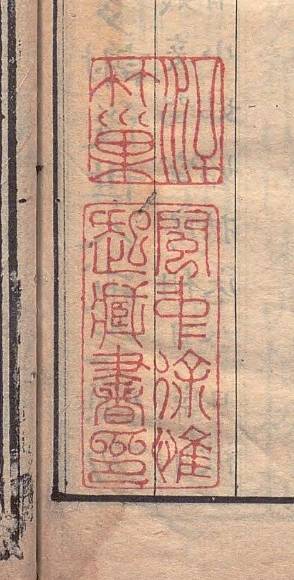 汗
竹巢
閩中徐惟
起藏書印